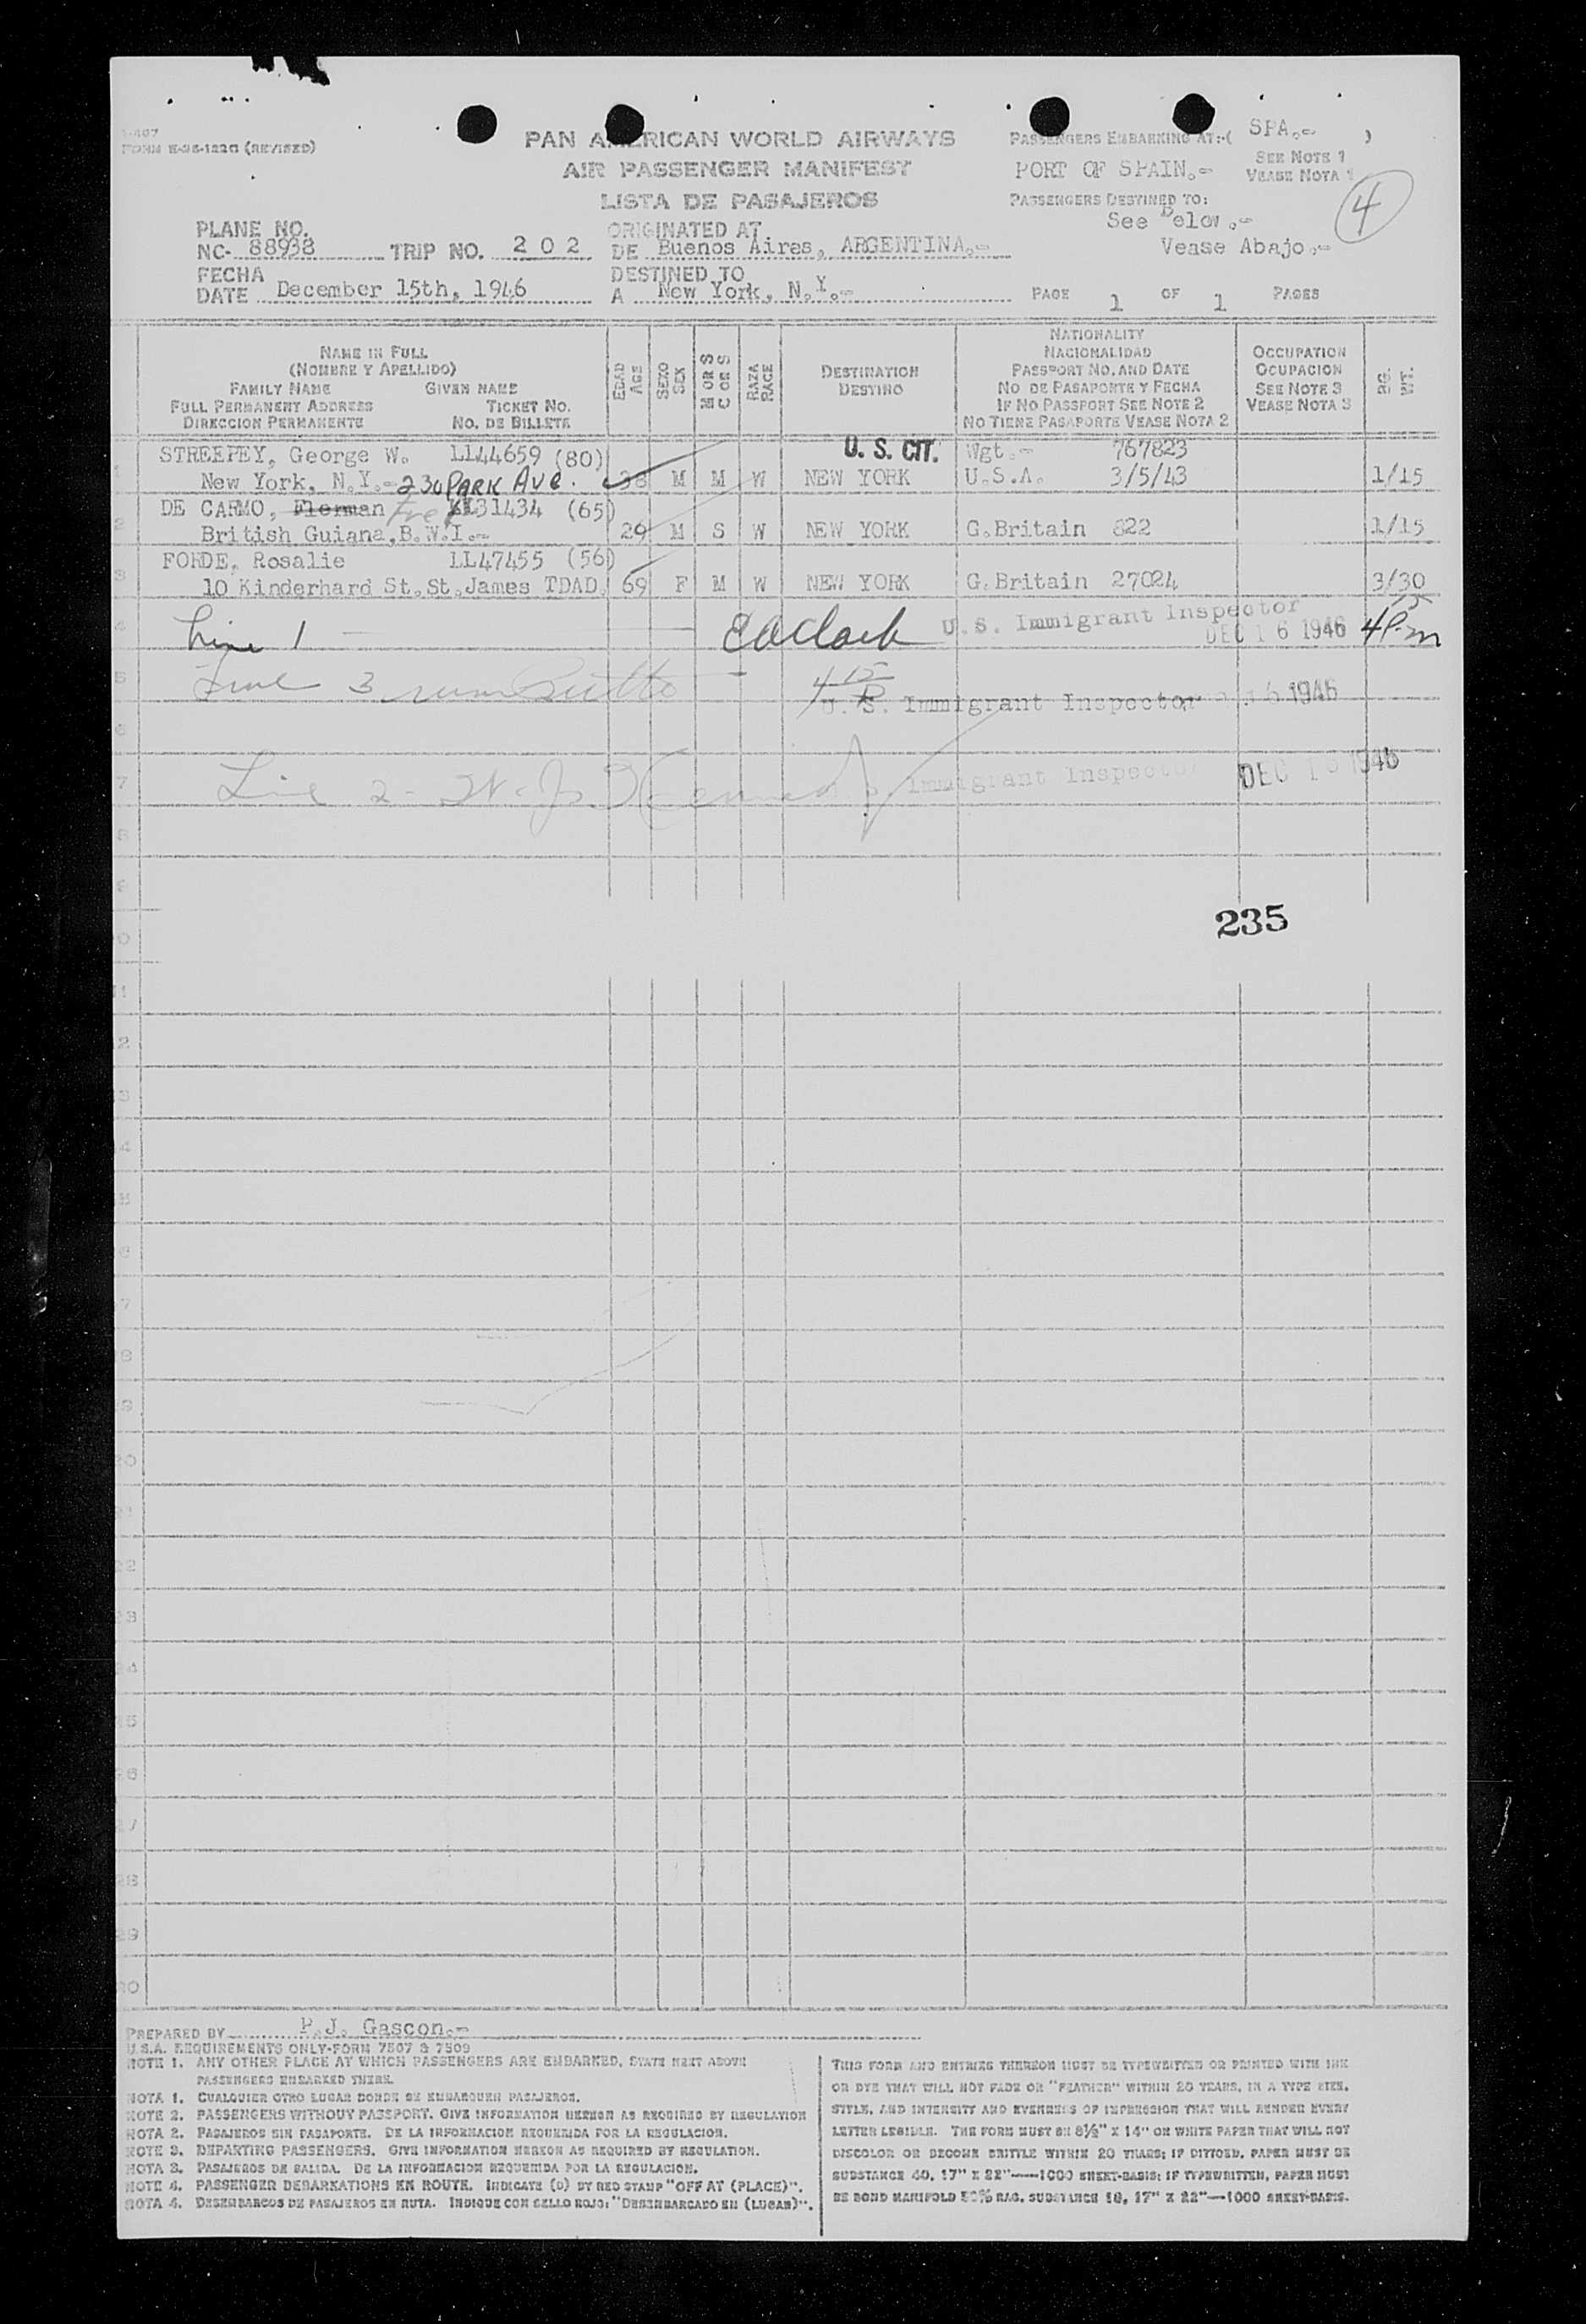 FORM (REVISED)
PAN AMERICAN WORLD AIRWAYS
AIR PASSENGER MANIFEST
LISTA DE PASAJEROS
PASSENGERS EMBARKING AT:-( SPA.- )
SEE NOTE 1
VEASE NOTA 1
PORT OF SPAIN.-
PASSENGERS DESTINED TO:
See Below.-
Vease Abajo.-
4
PLANE NO.
NC- 88938 TRIP NO. 202
ORIGINATED AT
DE Buenos Aires, ARGENTINA.-
FECHA
DATE December 15th, 1946
DESTINED TO
A New York, N.Y.-
PAGE 1 OF 1 PAGES
NAME IN FULL
(NOMBRE Y APELLIDO)
FAMILY NAME GIVEN NAME
FULL PERMANENT ADDRESS TICKET NO.
DIRECCION PERMANENTE NO. DE BILLETE
EDAD AGE
SEXO SEX
M OR S C OR S
RAZA RACE
DESTINATION
DESTINO
NATIONALITY
NACIONALIDAD
PASSPORT NO. AND DATE
NO DE PASAPORTE Y FECHA
IF NO PASSPORT SEE NOTE 2
NO TIENE PASAPORTE VEASE NOTA 2
OCCUPATION
OCUPACION
SEE NOTE 3
VEASE NOTA 3
BG. WT.
STREEPEY, George W. LL44659 (80) U. S. CIT. Wgt.- 767823
New York, N.Y.- 230 PARK AVE. 38 M M W NEW YORK U.S.A. 3/5/43 1/15
DE CARMO, 31434 (65)
British Guiana, B.W.I.- 29 M S W NEW YORK G.Britain 822 1/15
FORDE, Rosalie LL47455 (56)
10 Kinderhard St. St. James TDAD. 69 F M W NEW YORK G.Britain 27024 3/30
Line 1 U. S. Immigrant Inspector DEC 16 1946
Line 3 U. S. Immigrant Inspector 1946
Line 2 - Immigrant Inspector DEC 1946
235
PREPARED BY P.J. Gascon.-
U.S.A. REQUIREMENTS ONLY-FORM 7507 & 7509
NOTE 1. ANY OTHER PLACE AT WHICH PASSENGERS ARE EMBARKED, STATE NEXT ABOVE
PASSENGERS EMBARKED THERE.
NOTA 1. CUALQUIER OTRO LUGAR DONDE SE EMBARQUEN PASAJEROS.
NOTE 2. PASSENGERS WITHOUT PASSPORT. GIVE INFORMATION HEREON AS REQUIRED BY REGULATION
NOTA 2. PASAJEROS SIN PASAPORTE. DE LA INFORMACION REQUERIDA POR LA REGULACION.
NOTE 3. DEPARTING PASSENGERS. GIVE INFORMATION HEREON AS REQUIRED BY REGULATION.
NOTA 3. PASAJEROS DE SALIDA. DE LA INFORMACION REQUERIDA POR LA REGULACION.
NOTE 4. PASSENGER DEBARKATIONS EN ROUTE. INDICATE (D) BY RED STAMP "OFF AT (PLACE)".
NOTA 4. DESEMBARCOS DE PASAJEROS EN RUTA. INDIQUE CON SELLO ROJO: "DESEMBARCADO EN (LUGAR)".
THIS FORM AND ENTRIES THEREON MUST BE TYPEWRITTEN OR PRINTED WITH INK
OR DYE THAT WILL NOT FADE OR "FEATHER" WITHIN 20 YEARS, IN A TYPE SIZE,
STYLE, AND INTENSITY AND EVENNESS OF IMPRESSION THAT WILL RENDER EVERY
LETTER LEGIBLE. THE FORM MUST BE 8½" X 14" ON WHITE PAPER THAT WILL NOT
DISCOLOR OR BECOME BRITTLE WITHIN 20 YEARS; IF DITTOED, PAPER MUST BE
SUBSTANCE 40, 17" X 22"—1000 SHEET-BASIS; IF TYPEWRITTEN, PAPER MUST
BE BOND MANIFOLD 50% RAG, SUBSTANCE 18, 17" X 22"—1000 SHEET-BASIS.